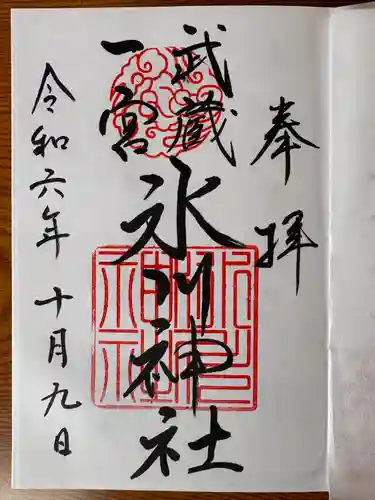 奉拝
武蔵
一宮
氷川神社
令和六年十月九日
氷川神社